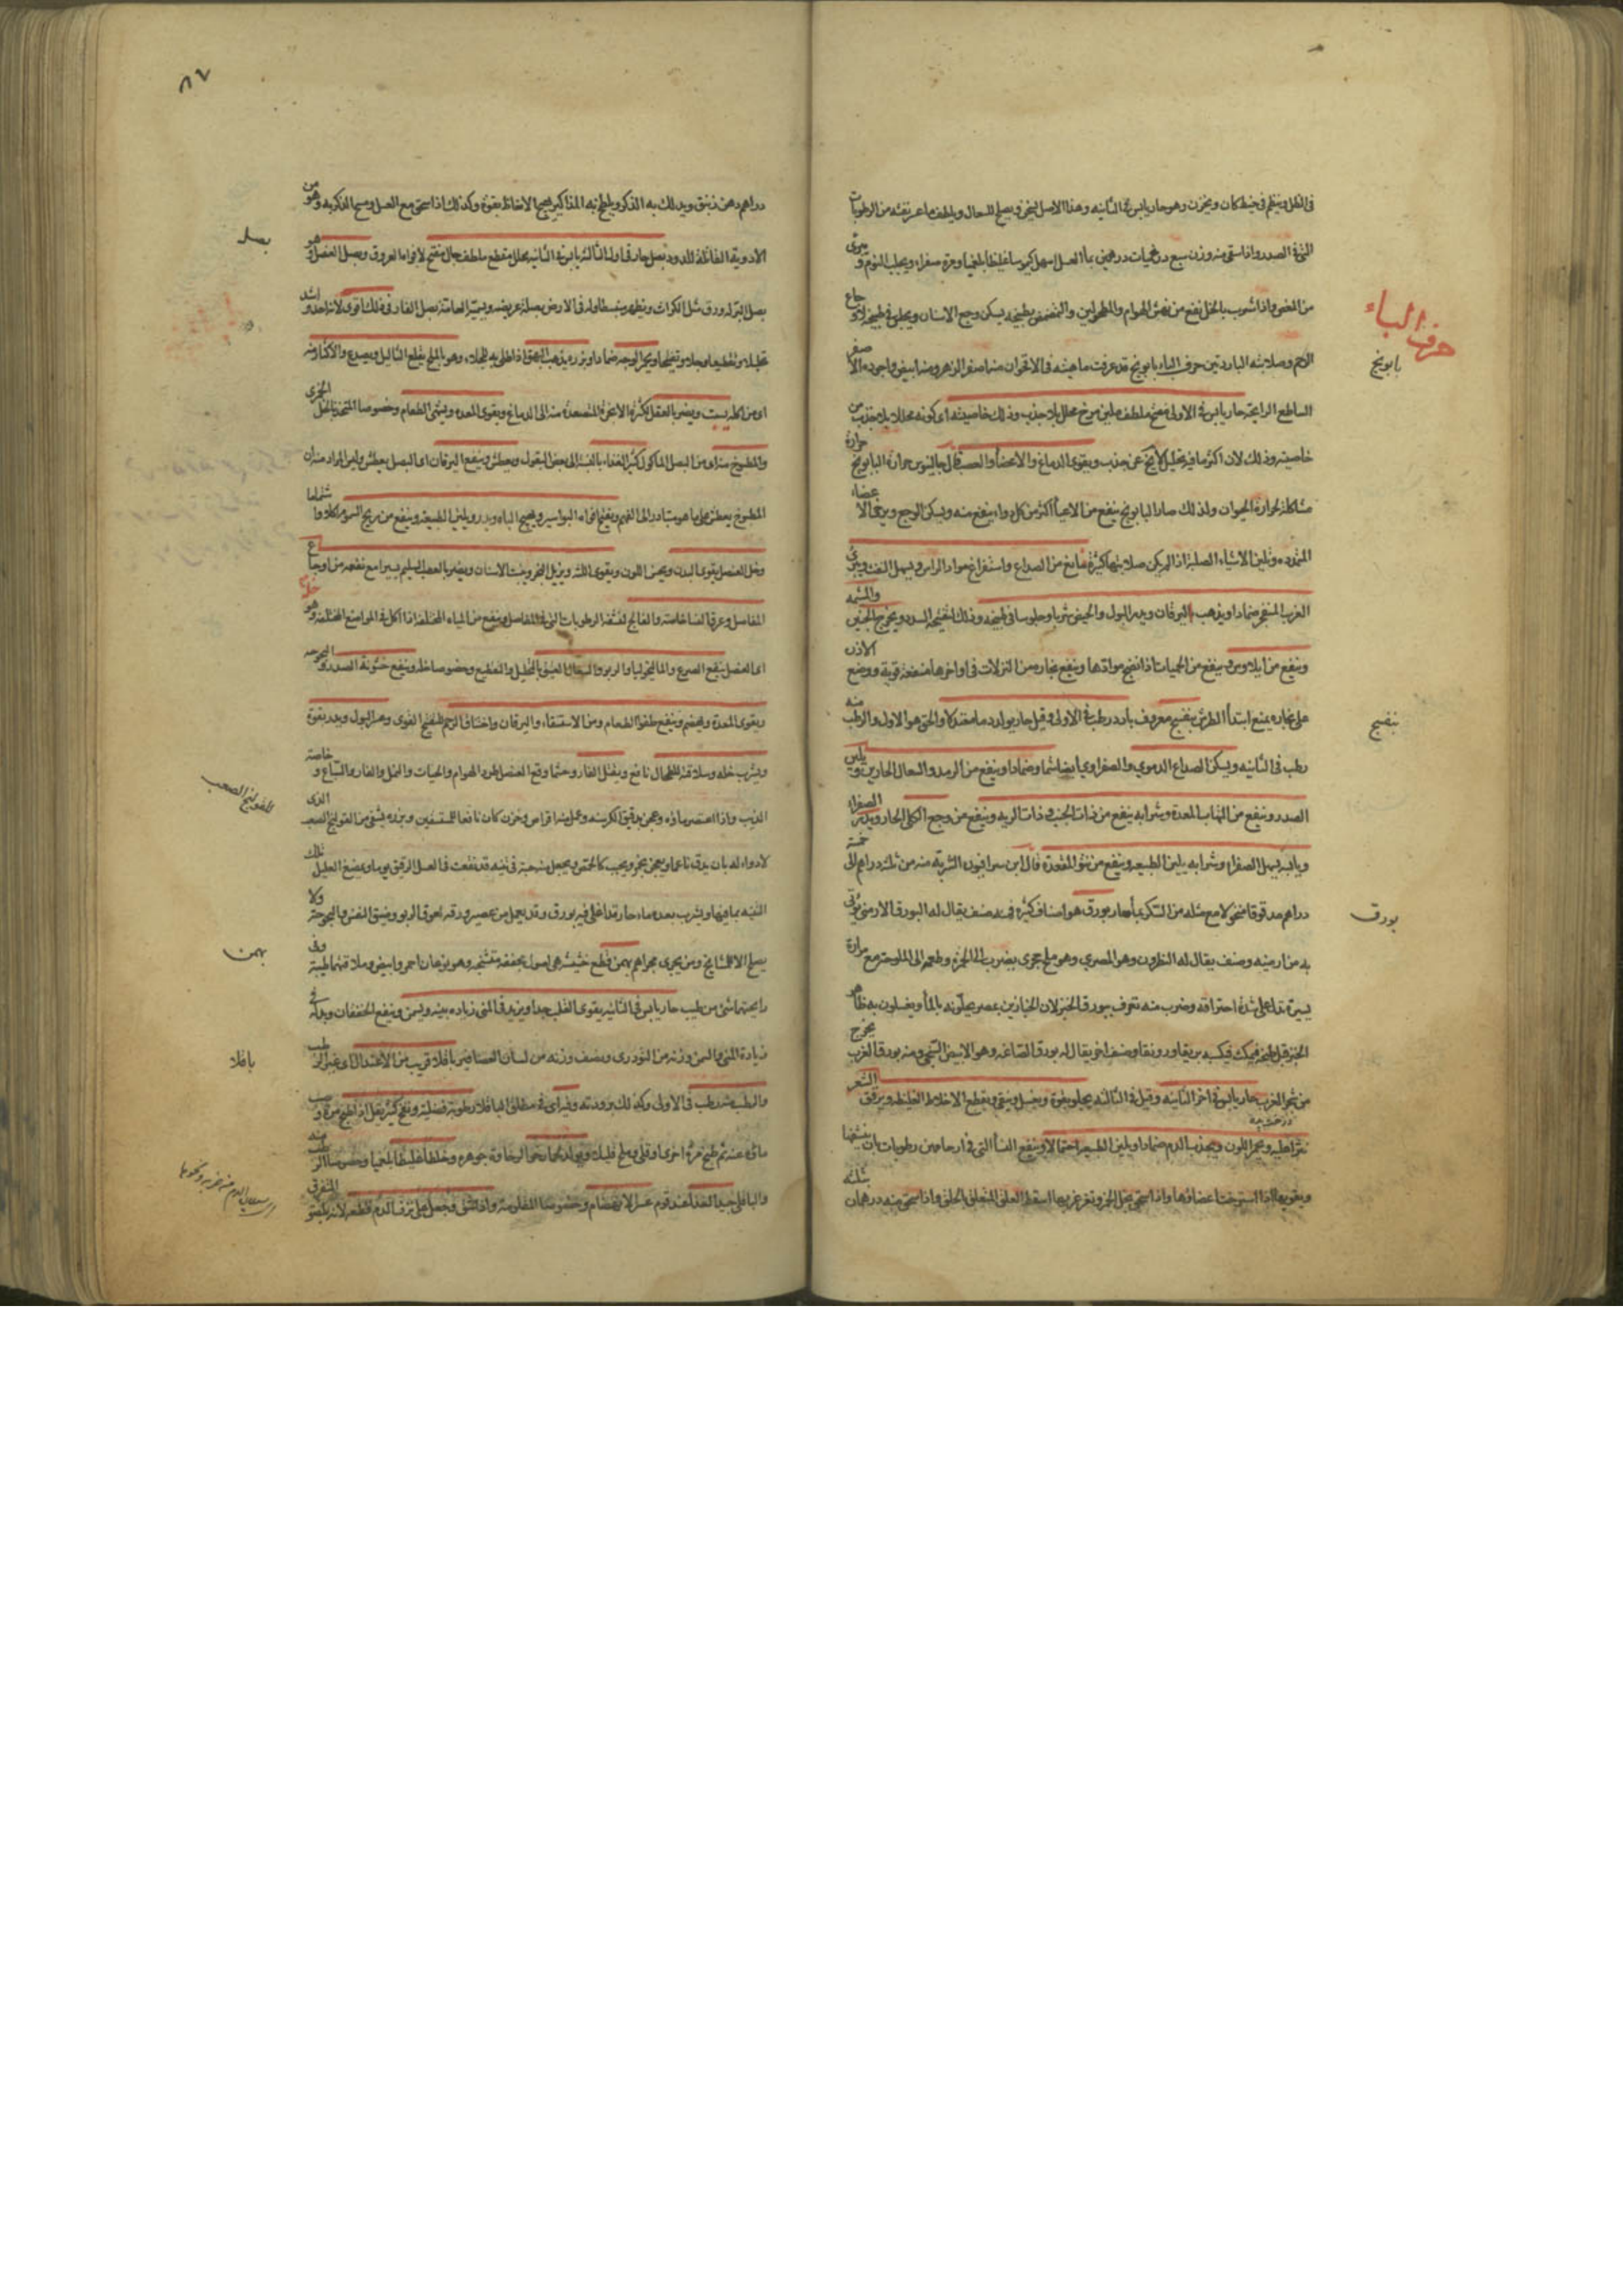 فى الظل وينظم فى خيط كتان ويخزن وهو حار يابس فى الثانيه وهذا الاصل ينقى ويصلح للسعال ويلطف ما عسر نفثه من الرطوبات
التى فى الصدر واذا سقى منه وزن سبع درخميات درهمين بماء العسل اسهل كيموسا غليظا بلغميا ومرة صفراء ويجلب النوم و يبرئ
من المغص واذا شرب بالخل نفع من نهش الهوام والمطحولين والتمضمض بطبيخه يسكن وجع الاسنان ويجلس فى طبيخه لاوجاع
الرحم وصلابته الباردتين حرف الباء بابونج قد عرفت ماهيته فى الاقحوان منه اصفر الزهر ومنه ابيض واجوده الاصفر
حرف الباء
بابونج
الساطع الرايحة حار يابس فى الاولى مفتح ملطف ملين مرخ محلل بلا جذب وذلك خاصيته اى كونه محللا بلا جذب من
خاصيته وذلك لان اكثر ما فيه تحليل لا يخ عن جذب ويقوى الدماغ والاعضاء العصبية قال جالينوس حرارة البابونج
مشاكلة لحرارة الحيوان ولذلك صار البابونج ينفع من الاعياء اكثر من كل دواء ينفع منه ويسكن الوجع ويرخى الاعضاء
المتمدده ويلين الاشياء الصلبة اذا لم يكن صلابتها كثيرة نافع من الصداع واستفراغ مواد الراس ويسهل النفث ويبرئ
الغرب المنفجر ضمادا ويذهب اليرقان ويدر البول والحيض شربا وجلوسا فى طبيخه وذلك لتفتيحه السدد ويخرج الجنين والمشيمه
وينفع من ايلاوس وينفع من الحميات اذا نضج موادها وينفع بخاره من النزلات فى اواخرها منفعة قوية ووضع الاذن
على بخاره يمنع ابتداء الطرش بنفسج معروف بارد رطب فى الاولى وقيل حار والحق هو الاول والرطب منه
بنفسج
رطب فى الثانيه ويسكن الصداع الدموى والصفراوى ايضا شما وضمادا وينفع من الرمد والسعال الحارين ويلين
الصدر وينفع من التهاب المعدة وشرابه ينفع من ذات الجنب وذات الريه وينفع من وجع الكلى الحار ويدر الصفراء
ويابسه يسهل الصفراء وشرابه يلين الطبيعه وينفع من نتو المقعدة قال ابن سرافيون الشربة منه من ثلثه دراهم الى خمسة
دراهم مدقوقا منخولا مع مثله من السكر بماء حار بورق هو اصناف كثيرة فمنه صنف يقال له البورق الارمنى يوتى
بورق
به من ارمنيه وصنف يقال له النطرون وهو المصرى وهو ملح حجرى يضرب الى الحمرة وطعمه الى الملوحة مع مرارة
يسيرة تدل على شدة احتراقه وضرب منه تعرف ببورق الخبز لان الخبازين بمصر يحلونه بالماء ويغسلون به ظاهر
الخبز قبل طبخه فيكسبه بريقا ورونقا وصنف اخر يقال له بورق الصاغه وهو الابيض ومنه بورق الغرب يخرج
من شجر الغرب حار يابس فى اخر الثانيه وقيل فى الثالثه يجلو بقوة ويغسل وينقى ويقطع الاخلاط الغليظه ويرقق الشعر
نثرا عليه ويحمر اللون ويجذب الدم ضمادا ويلين الطبيعه احتمالا وينفع النساء التى فى ارحامهن رطوبات بان ينشفها
ويقويها اذا استرخت اعضاؤها واذا سحق بخل الخمر وتغرغر بها اسقط العلق المتعلق بالحلق واذا سحق منه درهمان ثلثه
٨٧
دراهم دهن زنبق ويدلك به الذكر ويلطخ به المذاكير يهيج الانعاظ بقوة وكذلك اذا سحق مع العسل ومسح الذكر به وهو من
الادوية القاتلة للدود بصل حار فى اول الثالثه يابس فى الثانيه محلل مقطع ملطف جال مفتح لافواه العروق وبصل العنصل هو
بصل
بصل البر له ورق مثل الكراث ويظهر منبسطا وله فى الارض بصلة عريضه ويسميه العامة بصل الفار فى ذلك اقوى لانه احد واشد
تحليلا وتقطيعا وجلا وتفتيحا ويحمر الوجه ضمادا وبزره يذهب البهق اذا طلى به للجلاء وهو بالملح يقلع الثآليل ويصدع والاكثار منه
اى من اكله يسبت ويضر بالعقل لكثرة الابخرة المتصعدة منه الى الدماغ ويقوى المعده ويشهى الطعام وخصوصا المتخذ بالخل
والمطبوخ منه اى من البصل الماكول كثير الغذاء بالنسبة الى بعض البقول ويعطش وينفع اليرقان اى البصل يعطش وليس المراد منه ان
المطبوخ يعطش على ما هو متبادر الى الفهم ويفتح افواه البواسير ويهيج الباه ويدر ويلين الطبيعه وينفع من ريح السموم
وخل العنصل يقوى البدن ويحسن اللون ويقوى اللثه ويزيل البخر ويثبت الاسنان ويضر بالعصب السليم يسيرا مع نفعه من اوجاع
المفاصل وعرق النسا خاصة والفالج لنشفه الرطوبات التى فى المفاصل وينفع من المياه المختلفة اذا اكل فى المواضع المختلفة وهو
اى العنصل ينفع الصرع والماليخوليا والربو والسعال العتيق بالتحليل والتقطيع وخصوصا خله وينفع خشونة الصدر
ويقوى المعدة ويهضم وينفع طفو الطعام ومن الاستسقاء واليرقان واختناق الرحم للتفتيح القوى وعسر البول ويدر بقوة
ويشرب خله وسلاقته للطحال نافع ويقتل الفار وحيثما وقع العنصل طرد الهوام والحيات والنمل والفار والسباع وخاصة
الذيب واذا اعتصر ماؤه وعجن بدقيق الكرسنه وعمل منه اقراص وخزن كان نافعا للمستسقين وبزره يشفى من القولنج الصعب الذى
القولنج الصعب
لا دواء له بان يدق ناعما ويعجن بخمر ويحبب كالحمص ويجعل منه حبة فى تينة قد نقعت فى العسل الرقيق يوما ويمضغ العليل تلك
التينه بما فيها ويشرب بعده ماء حار قد اغلى فيه بورق وقد يعمل من عصير ورقه لعوق للربو وضيق النفس والبحوحة ولا
يصلح الا للمشايخ ومن يجرى مجراهم بهمن قطع خشبيه هى اصول مجففة متشنجه وهو نوعان احمر وابيض وفى
بهمن
رايحتهما شئ من طيب حار يابس فى الثانيه يقوى القلب جدا ويزيد فى المنى زيادة بينة ويسمن وينفع الخفقان وبدله فى
زيادة المنى والسمن وزنه من التودرى ونصف وزنه من لسان العصافير باقلا قريب من الاعتدال
باقلا
والرطب منه رطب فى الاولى وكذلك برودته وقيل اى فى مطلق الباقلا رطوبة فضلية ونفخ كثير يقل اذا طبخ مرة وصب
ماؤه عنه ثم طبخ مرة اخرى او قلى وملح قليلا ويولد لحما رخوا لرخاوة جوهره وخلطا غليظا بلغميا وخصوصا الرطب منه
والباقلى جيد الغذا عند قوم عسر الانهضام وخصوصا المقلو منه واذا شق وجعل على نزف الدم قطعه